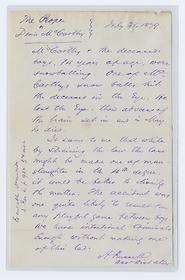 The People
v
Denis McCarthy
July 29, 1879
McCarthy & the deceased
boys, 10 years of age, were
snowballing. One of Mc
Carthys snow balls hit
the deceased in the eye. He
lost the eye & then abscess of
the brain set in and in May
he died.
It seems to me that while
by straining the law the case
might be made one of man
slaughter in the 4th degree
it would be better to dismiss
the matter. The accident was
one quite likely to result from
any playful game between boys
We have intentional criminals
enough without making one
of this lad.
H. Russell
Asst Dist Atty